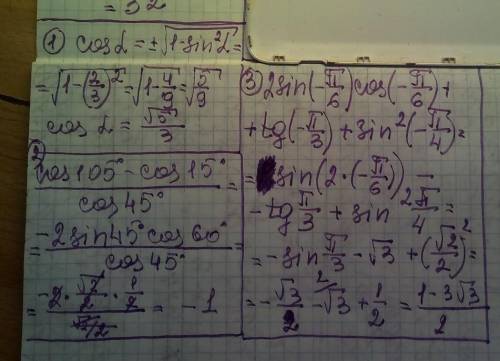 = 32
① cos α = ±√(1-sin²α) =
= √(1-(2/3)²) = √(1-4/9) = √(5/9)
cos α = √5/3
②
(cos 105° - cos 15°)/cos 45° =
= (-2 sin 45° cos 60°)/cos 45° =
= (-2 · √2/2 · 1/2)/(√2/2) = -1
③ 2 sin(-π/6) cos(-π/6) +
+ tg(-π/3) + sin²(-π/4) =
= sin(2·(-π/6)) -
- tg π/3 + sin² π/4 =
= -sin π/3 - √3 + (√2/2)² =
= -√3/2 - √3 + 1/2 = (1-3√3)/2